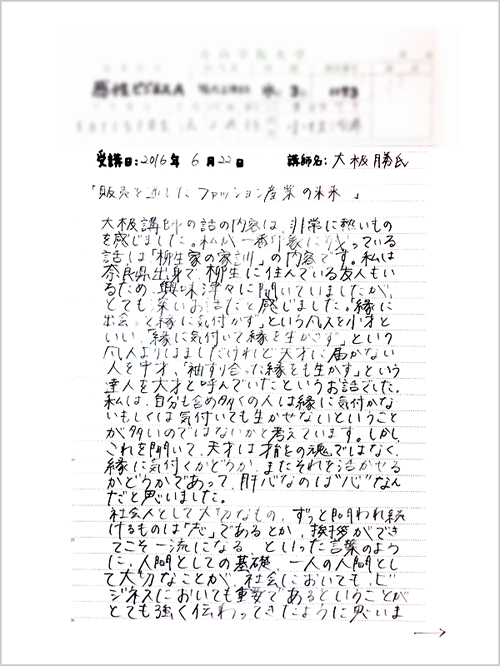 感性ビジネスA
受講日:2016年 6月22日 講師名:大板勝氏
「販売を通したファッション産業の未来」
大板講師の話の内容は、非常に熱いもの
を感じました。私が一番印象に残っている
話は「柳生家の家訓」の内容です。私は
奈良県出身で、柳生に住んでいる友人もい
るため、興味津々に聞いていましたが、
とても深いお話だと感じました。「縁に
出会って縁に気付かず」という凡人を小才と
いい、「縁に気付いて縁を生かさず」という
凡人よりはましだけれど天才に届かない
人を中才、「袖すり合った縁をも生かす」という
達人を大才と呼んでいたというお話でした。
私は、自分も含め多くの人は縁に気付かな
いもしくは気付いても生かせないということ
が多いのではないかと考えています。しかし
これを聞いて、天才は才能の塊ではなく、
縁に気付くかどうか、またそれを活かせる
かどうかであって、肝心なのは"心"なん
だと思いました。
社会人として大切なもの、ずっと問われ続
けるものは「心」であるとか、挨拶ができ
てこそ一流になる、といった言葉のよう
に、人間としての基礎、一人の人間とし
て大切なことが、社会においても、ビ
ジネスにおいても重要であるということが
とても強く伝わってきたように思いま
→